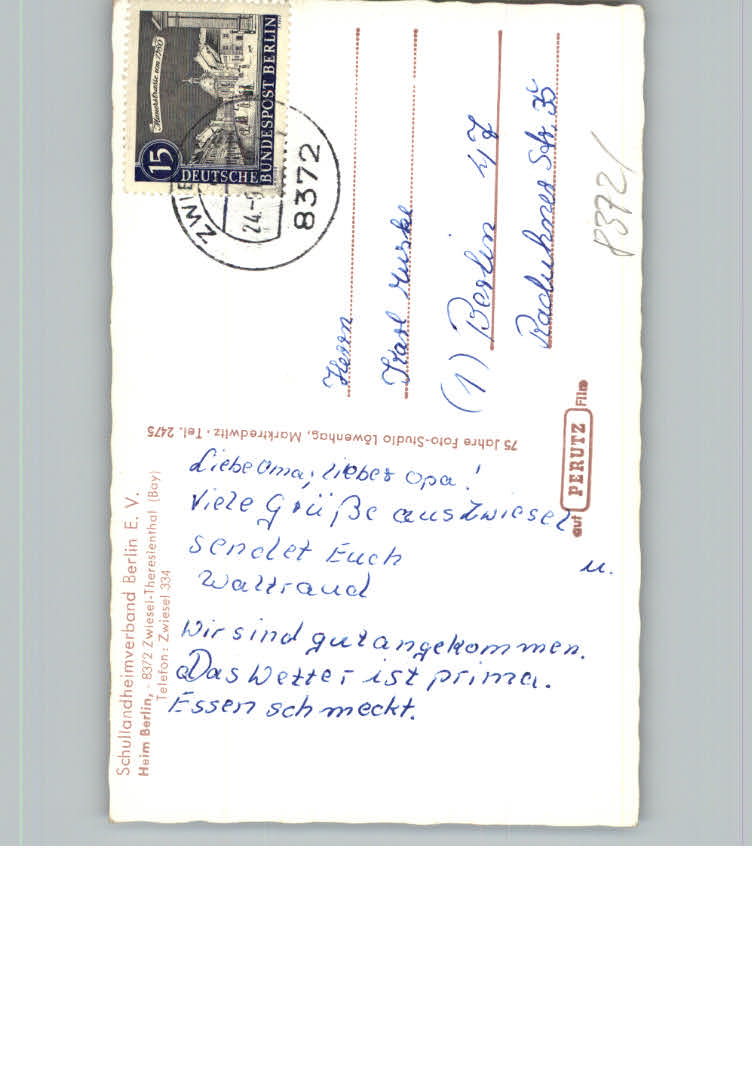 Schullandheimverband Berlin E. V.
Heim Berlin, · 8372 Zwiesel-Theresienthal (Bay)
Telefon: Zwiesel 334
Liebe Oma, lieber Opa!
Viele Grüße aus Zwiesel
sendet Euch u.
Waltraud
Wir sind gut angekommen.
Das Wetter ist prima.
Essen schmeckt.
75 Jahre Foto-Studio Löwenhag, Marktredwitz · Tel. 2475
auf PERUTZ Film
Mauerstrasse um 1780
15
DEUTSCHE
BUNDESPOST BERLIN
24.-9
8372
Herrn
Karl
(1) Berlin 47
Str. 35
8372/